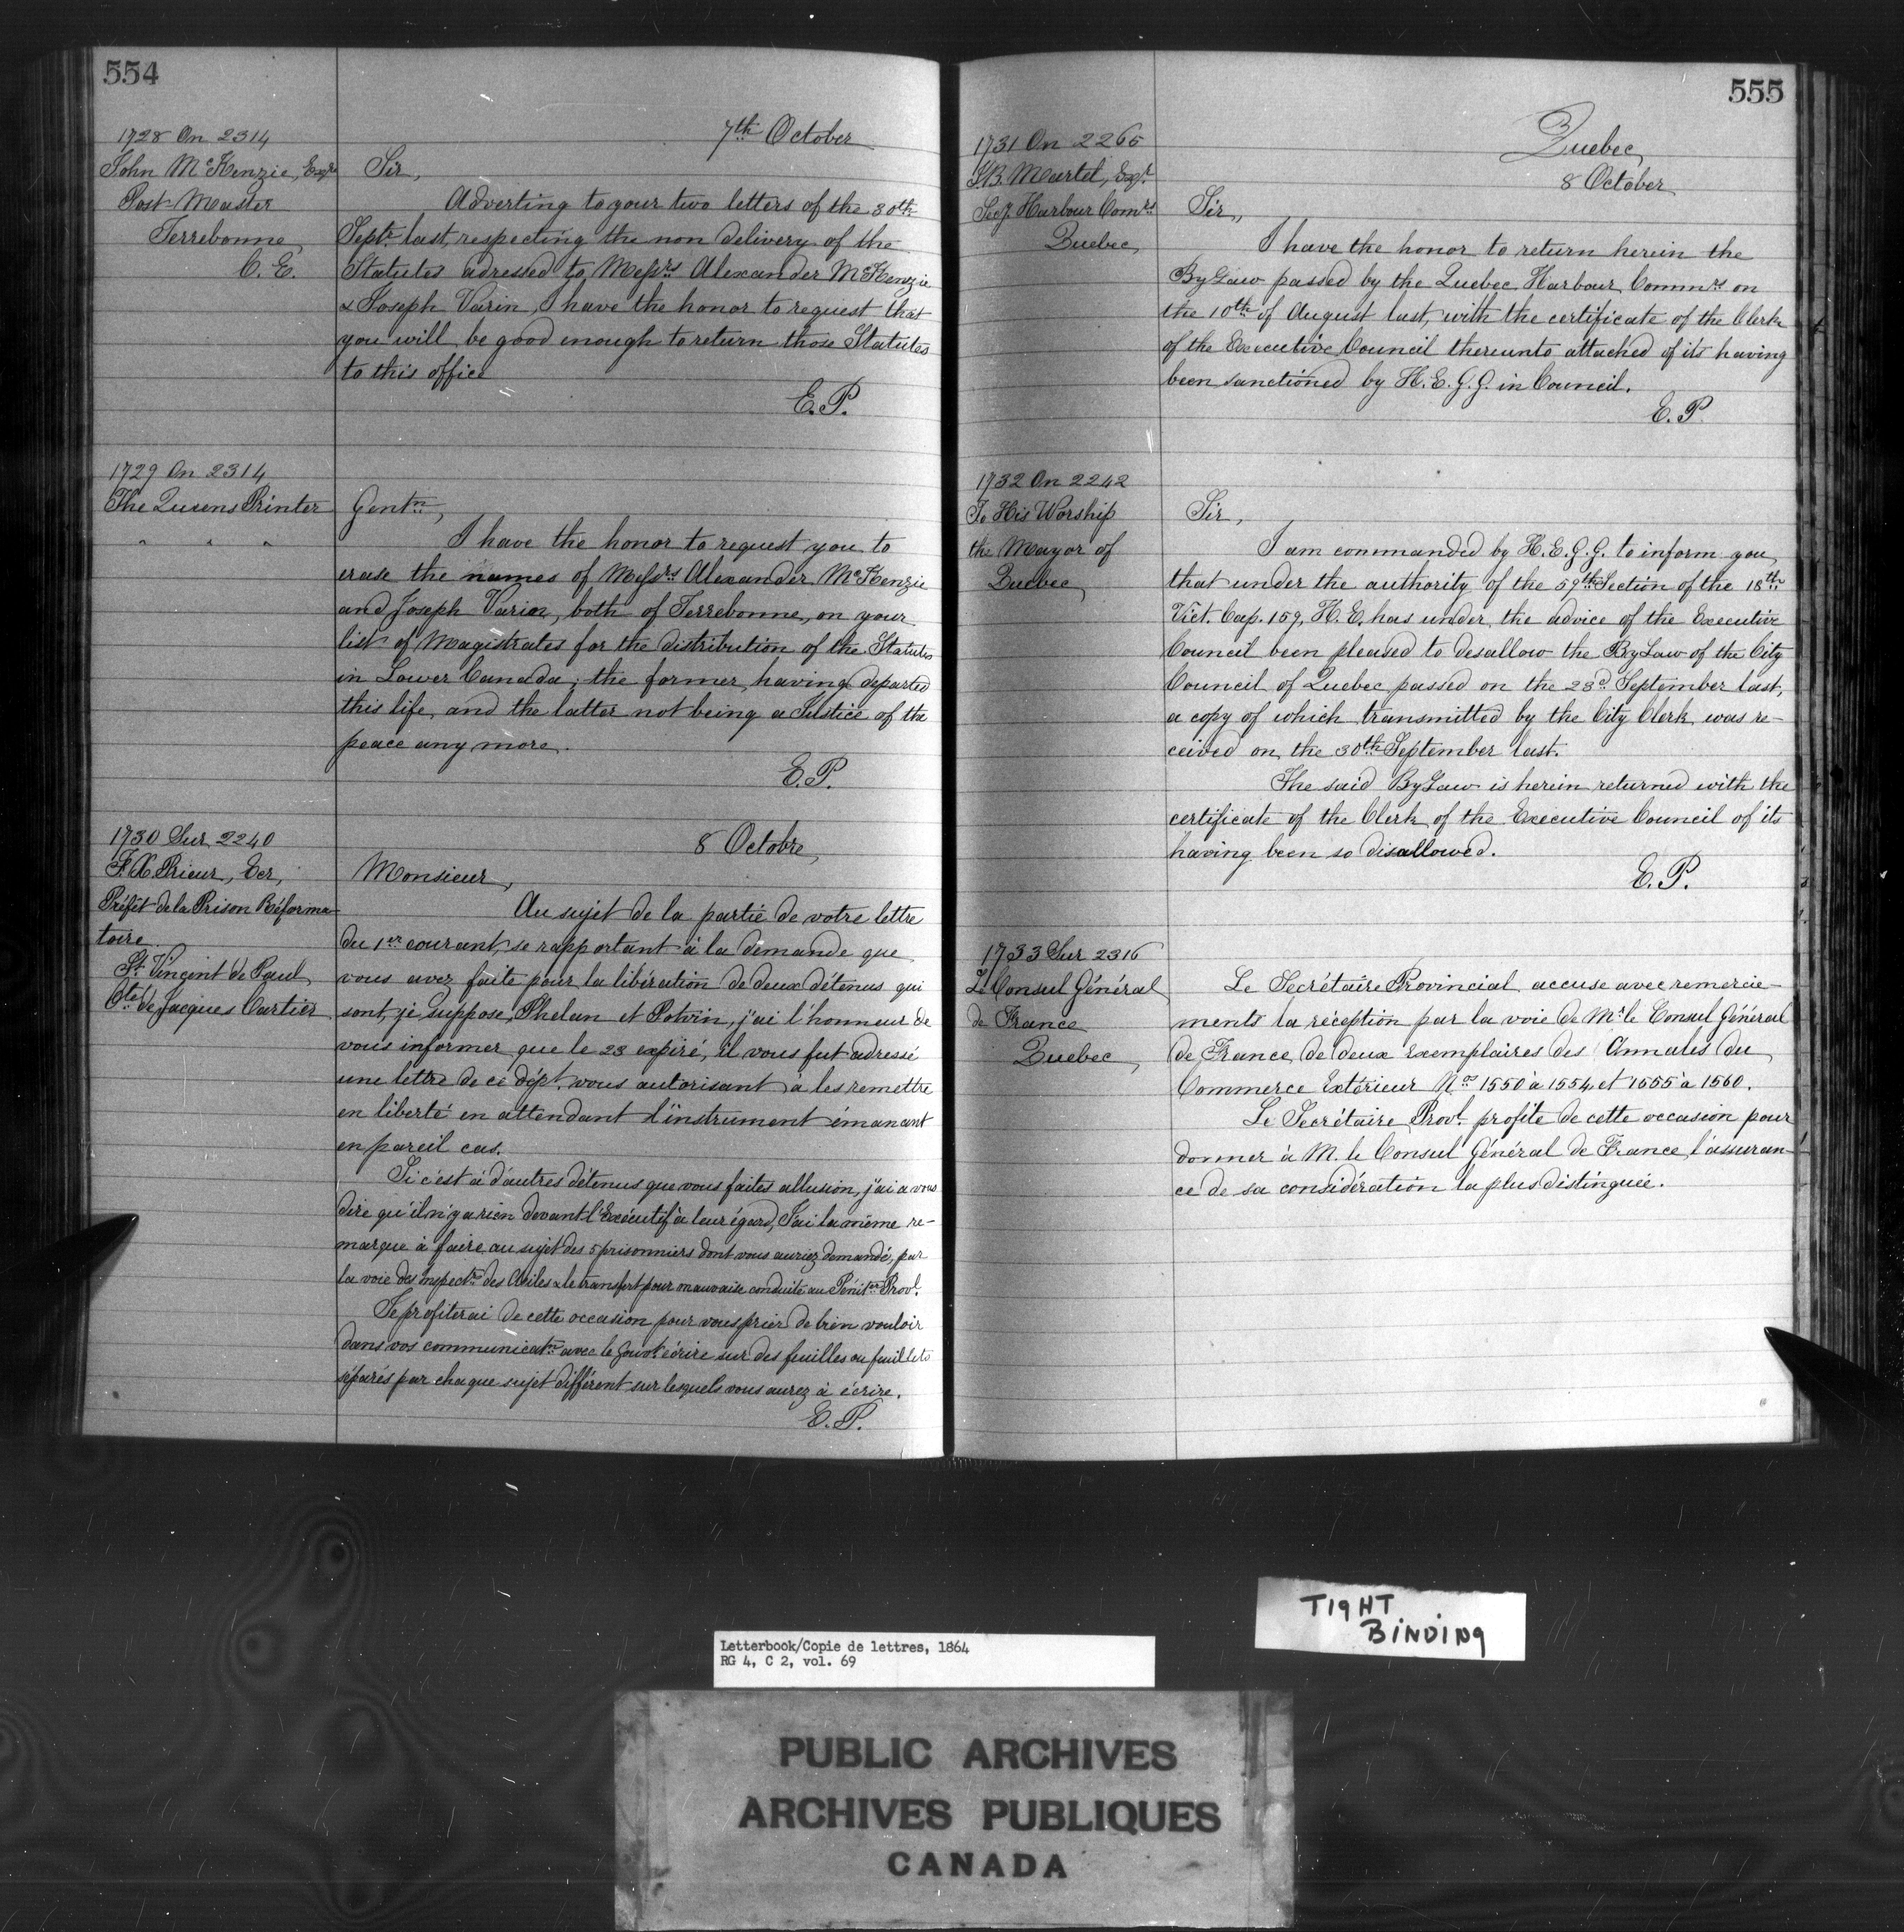 554
7th October
1728 On 2314
John McKenzie, Esqr
Post Master
Terrebonne,
C. E.
Sir,
Adverting to your two letters of the 30th
Septr last, respecting the non delivery of the
Statutes adressed to Messrs Alexander McKenzie
& Joseph Varin, I have the honor to request that
you will be good enough to return those Statutes
to this office
E. P.
1729 On 2314
The Queens Printer
" " "
Gentn,
I have the honor to request you to
erase the names of Messrs Alexander McKenzie
and Joseph Varin, both of Terrebonne, on your
list of Magistrates for the distribution of the Statutes
in Lower Canada; the former, having departed
this life, and the latter not being a Justice of the
peace any more.
E. P.
1730 Sur 2240
F. X. Prieur, Ecr,
Préfêt de la Prison Réforma-
toire
St Vincent de Paul,
Cté de Jacques Cartier
8 Octobre,
Monsieur,
Au sujet de la partie de votre lettre
du 1er courant, se rapportant à la demande que
vous avez faite pour la libération de deux détenus qui
sont, je suppose, Phelan et Potvin, j'ai l'honneur de
vous informer que le 23 expiré, il vous fut adressé
une lettre de ce dépt. vous autorisant à les remettre
en liberté en attendant l'instrument émanant
en pareil cas.
Si c'est à d'autres détenus que vous faites allusion, j'ai a vous
dire qu'il n'y a rien devant l'Exécutif à leur égard, J'ai la même re-
marque à faire au sujet des 5 prisonniers dont vous auriez demandé, par
la voie des inspectrs des Asiles &c le transfert pour mauvaise conduite au Pénitre Provl.
Je profiterai de cette occasion pour vous prier de bien vouloir
dans vos communicatns avec le Gouvt écrire sur des feuilles ou feuillets
séparés par chaque sujet différent sur lesquels vous aurez à écrire.
E. P.
555
Quebec,
8 October
1731 On 2265
J. B. Martel, Esqr.
Secy. Harbour Comrs
Quebec,
Sir,
I have the honor to return herein the
By Law passed by the Quebec Harbour Commrs on
the 10th of August last, with the certificate of the Clerk
of the Executive Council thereunto attached of its having
been sanctioned by H. E. G. G. in Council.
E. P.
1732 On 2242
To His Worship
the Mayor of
Quebec,
Sir,
I am commanded by H. E. G. G. to inform you,
that under the authority of the 59th Section of the 18th
Vict. Cap. 159, H. E. has under the advice of the Executive
Council been pleased to desallow the By Law of the City
Council of Quebec passed on the 23d September last,
a copy of which transmitted by the City Clerk, was re-
ceived on the 30th September last.
The said By Law is herein returned with the
certificate of the Clerk of the Executive Council of its
having been so disallowed.
E. P.
1733 Sur 2316
Le Consul Général
de France
Quebec,
Le Secrétaire Provincial accuse avec remercie-
ments la réception par la voie de Mr le Consul Général
de France, de deux exemplaires des Annales du
Commerce Extérieur Nos 1550 à 1554 et 1555 à 1560.
Le Secrétaire Provl profite de cette occasion pour
donner à M. le Consul Général de France, l'assuran-
ce de sa considération la plus distinguée.
TIGHT
BINDING
Letterbook/Copie de lettres, 1864
RG 4, C 2, vol. 69
PUBLIC ARCHIVES
ARCHIVES PUBLIQUES
CANADA